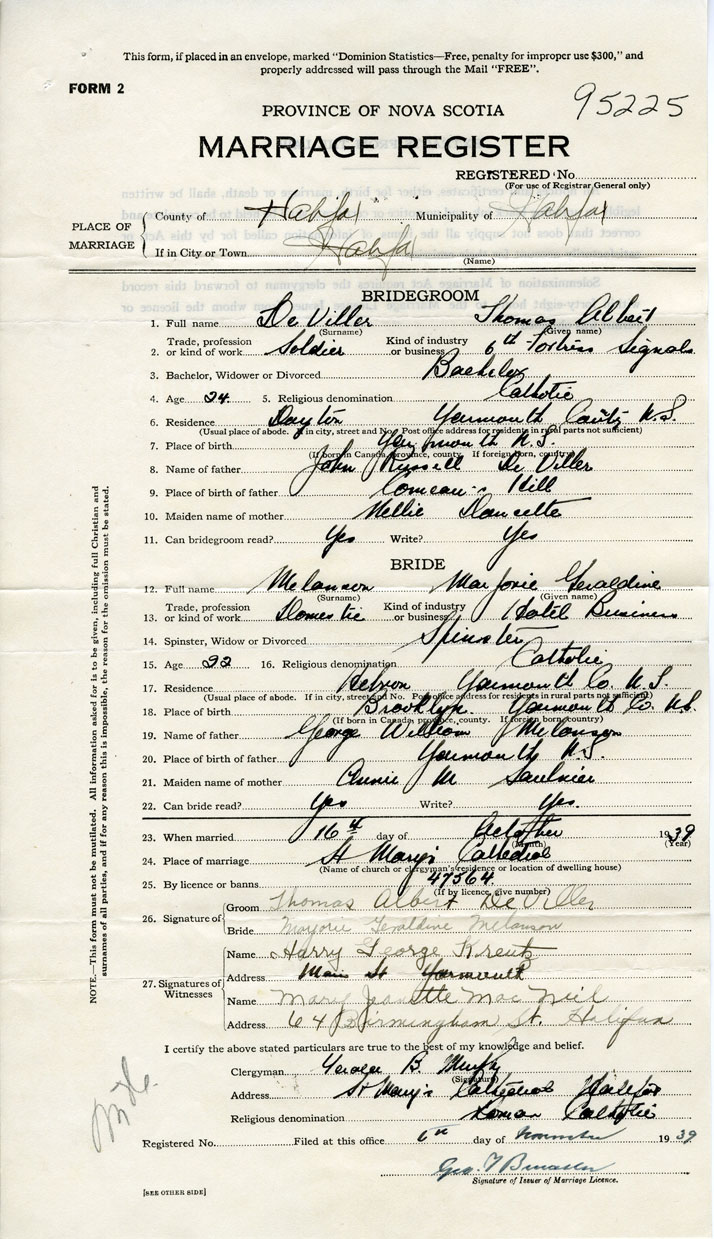 This form, if placed in an envelope, marked "Dominion Statistics—Free, penalty for improper use $300," and
properly addressed will pass through the Mail "FREE".
FORM 2
95225
PROVINCE OF NOVA SCOTIA
MARRIAGE REGISTER
REGISTERED No.
(For use of Registrar General only)
PLACE OF MARRIAGE
County of Halifax Municipality of Halifax
If in City or Town Halifax
(Name)
BRIDEGROOM
1. Full name De Viller Thomas Albert
(Surname) (Given name)
2. Trade, profession or kind of work Soldier Kind of industry or business 6th Fortress Signals
3. Bachelor, Widower or Divorced Bachelor
4. Age 24 5. Religious denomination Catholic
6. Residence Dayton Yarmouth County N.S.
(Usual place of abode. If in city, street and No. Post office address for residents in rural parts not sufficient)
7. Place of birth Yarmouth N.S.
(If born in Canada, province, county. If foreign born, country)
8. Name of father John Russell De Viller
9. Place of birth of father Comeau's Hill
10. Maiden name of mother Nellie Doucette
11. Can bridegroom read? Yes Write? Yes
BRIDE
12. Full name Melanson Marjorie Geraldine
(Surname) (Given name)
13. Trade, profession or kind of work Domestic Kind of industry or business Hotel Business
14. Spinster, Widow or Divorced Spinster
15. Age 22 16. Religious denomination Catholic
17. Residence Hebron Yarmouth Co. N.S.
(Usual place of abode. If in city, street and No. Post office address for residents in rural parts not sufficient)
18. Place of birth Brooklyn Yarmouth Co. N.S.
(If born in Canada, province, county. If foreign born, country)
19. Name of father George William Melanson
20. Place of birth of father Yarmouth N.S.
21. Maiden name of mother Annie M Saulnier
22. Can bride read? Yes Write? Yes.
23. When married 16th day of October 1939
(Month) (Year)
24. Place of marriage St Mary's Cathedral
(Name of church or clergyman's residence or location of dwelling house)
25. By licence or banns 47564
(If by licence, give number)
26. Signature of
Groom Thomas Albert De Viller
Bride Marjorie Geraldine Melanson
27. Signatures of Witnesses
Name Harry George Kreutz
Address Main St Yarmouth
Name Mary Jeanette Mac Neil
Address 64 Birmingham St. Halifax
I certify the above stated particulars are true to the best of my knowledge and belief.
Clergyman B. Murphy
(Signature)
Address St Mary's Cathedral Halifax
Religious denomination Roman Catholic
Registered No. Filed at this office 6th day of November 1939
Geo.
Signature of Issuer of Marriage Licence.
[SEE OTHER SIDE]
NOTE.—This form must not be mutilated. All information asked for is to be given, including full Christian and
surnames of all parties, and if for any reason this is impossible, the reason for the omission must be stated.